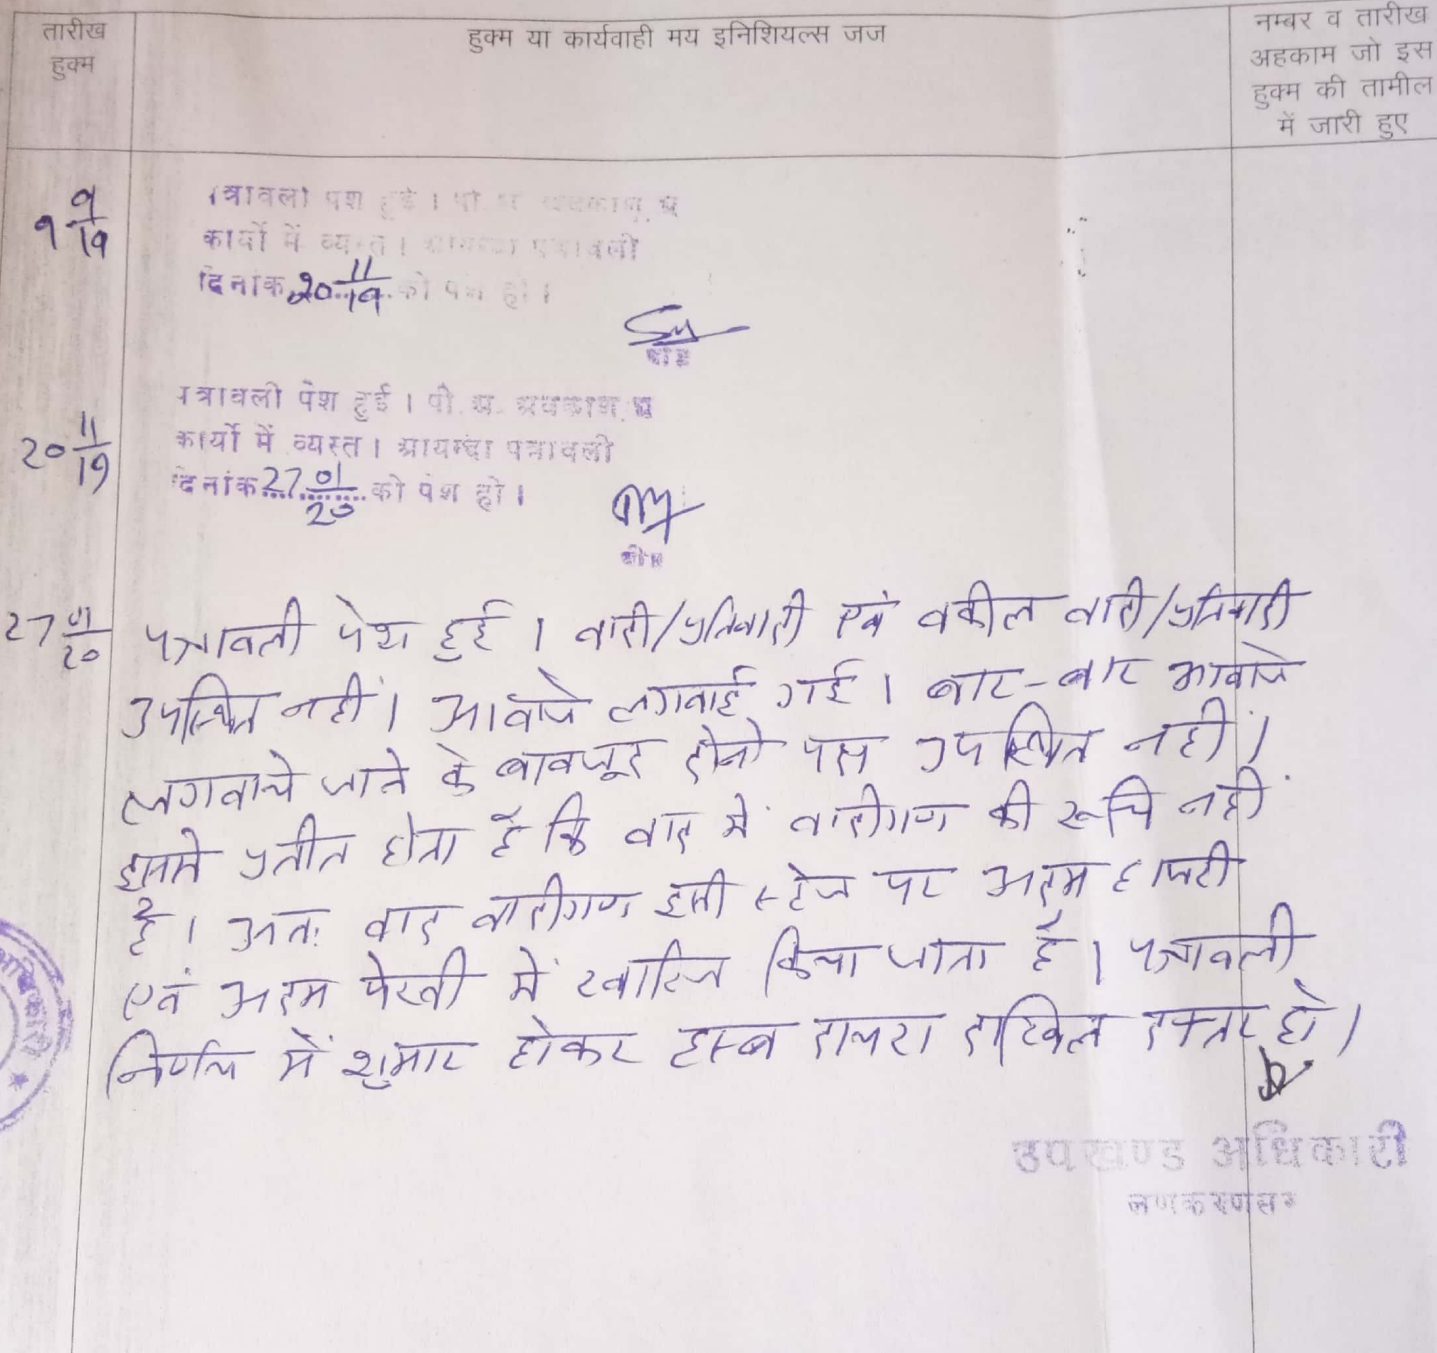 तारीख
हुक्म
हुक्म या कार्यवाही मय इनिशियल्स जज
नम्बर व तारीख
अहकाम जो इस
हुक्म की तामील
में जारी हुए
9 9/19
पत्रावली पेश हुई । पी. अ. अवकाश प
कार्यो में व्यस्त । आयन्दा पत्रावली
दिनांक 20 11/19 को पेश हो ।
20 11/19
पत्रावली पेश हुई । पी. अ. अवकाश
कार्यो में व्यस्त । आयन्दा पत्रावली
दिनांक 27 01/20 को पेश हो ।
27 01/20
पत्रावली पेश हुई । वादी/प्रतिवादी एवं वकील वादी/प्रतिवादी
उपस्थित नहीं । आवाजे लगवाई गई । बार-बार आवाजे
लगवाये जाने के बावजूद दोनो पक्ष उपस्थित नहीं ।
इससे प्रतीत होता है कि वाद में वादीगण की रूचि नहीं
है । अतः वाद वादीगण इसी स्टेज पर अदम हाजरी
एवं अदम पेरवी में खारिज किया जाता है । पत्रावली
निर्णय में शुमार होकर हस्ब दायरा दाखिल दफ्तर हो ।
उपखण्ड अधिकारी
लूणकरणसर